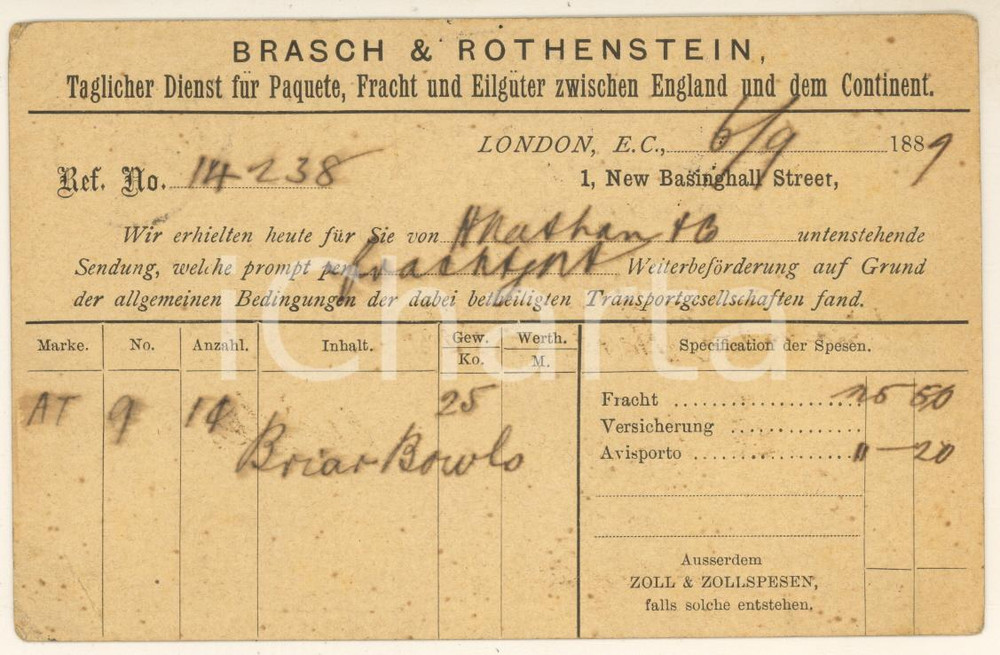 BRASCH & ROTHENSTEIN,
Taglicher Dienst für Paquete, Fracht und Eilgüter zwischen England und dem Continent.
LONDON, E.C., 6/9 1889
Ref. No. 14238
1, New Basinghall Street,
Wir erhielten heute für Sie von Nathan & untenstehende
Sendung, welche prompt per Weiterbeförderung auf Grund
der allgemeinen Bedingungen der dabei betheiligten Transportgesellschaften fand.
Marke. No. Anzahl. Inhalt. Gew. Ko. Werth. M. Specification der Spesen.
AT 9 14 25
Briar Bowls
Fracht 50
Versicherung
Avisporto " — 20
Ausserdem
ZOLL & ZOLLSPESEN,
falls solche entstehen.
iCharta